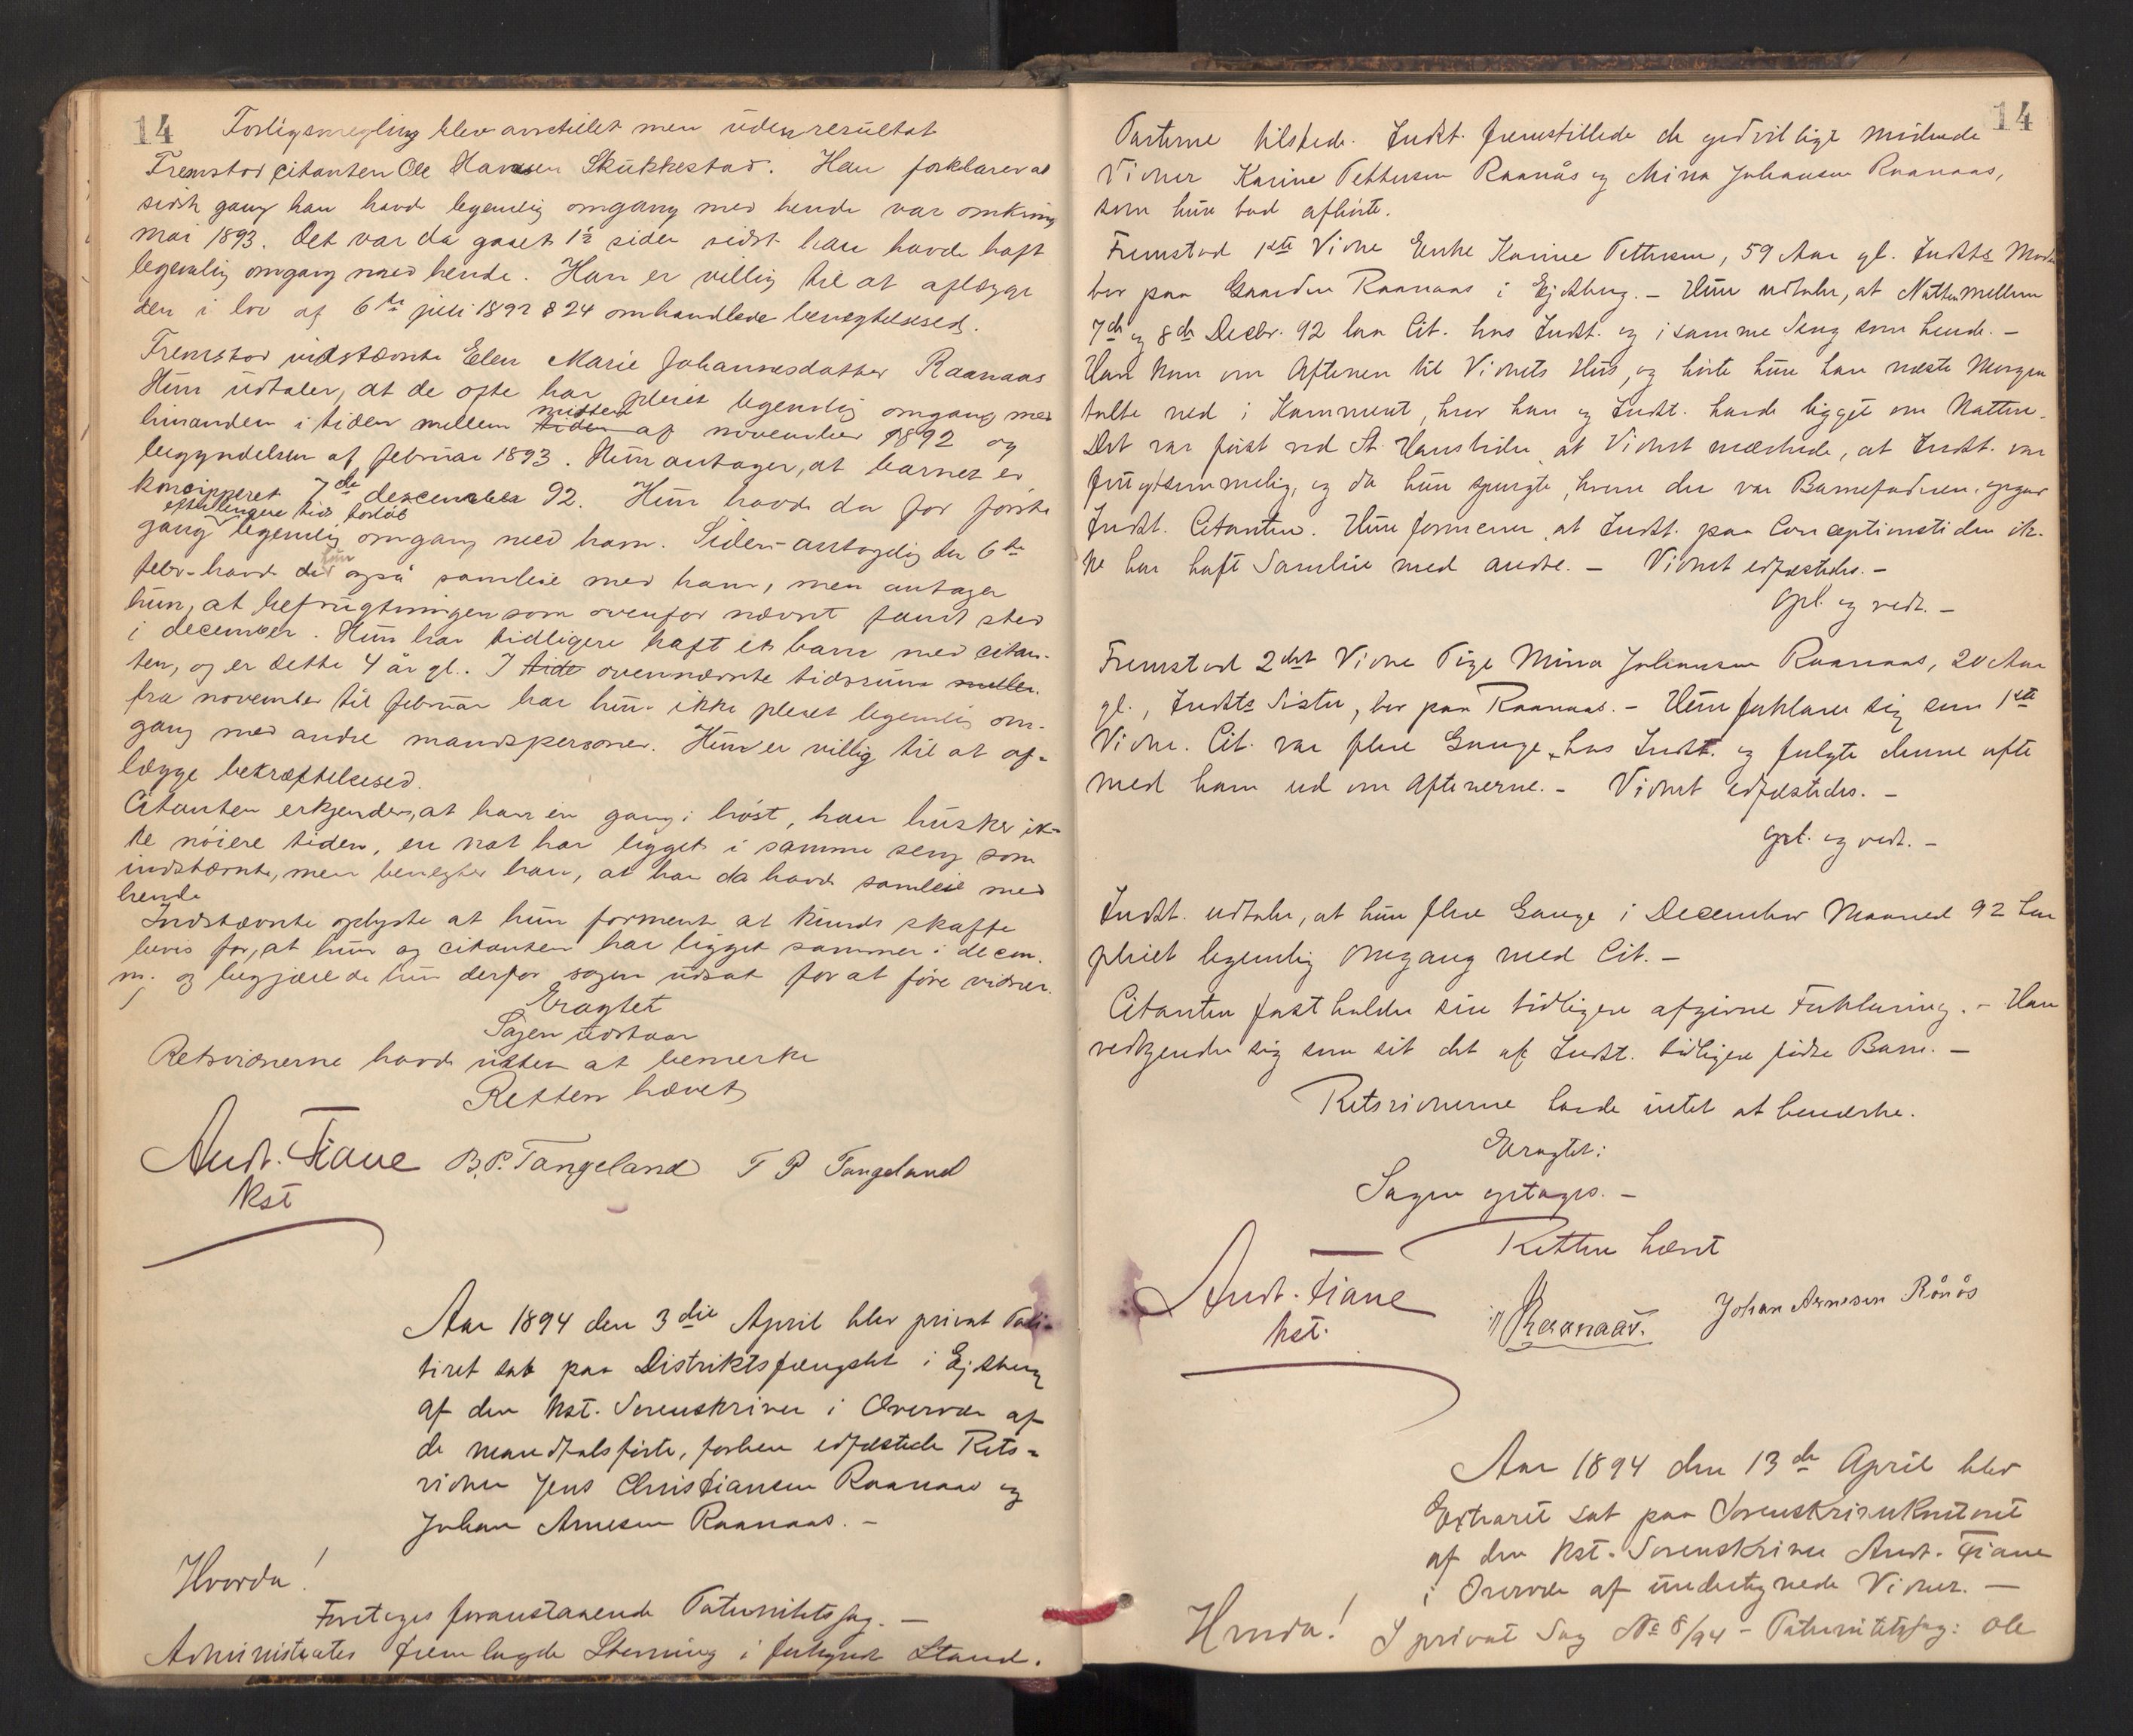 14
Forligsmegling blev anstillet men uden resultat
Fremstod citanten Ole Hansen Skukkestad. Han forklarer at
sidste gang han havde legemlig omgang med hende var omkring
mai 1893. Det var da gaaet 1½ siden sidst han havde haft
legemlig omgang med hende. Han er villig til at aflægge
den i lov af 6te juli 1892 § 24 omhandlede benegtelsesed.
Fremstod indstævnte Elen Marie Johannesdatter Raanaas
Hun udtaler, at de ofte har pleiet legemlig omgang med
hinanden i tiden mellem tiden midten af november 1892 og
begyndelsen af februar 1893. Hun antager, at barnet er
koncipperet 7de december 92. Hun havde da for første
efter længere tids forløb
gang legemlig omgang med ham. Siden - antagelig den 6te
febr - havde de hun også samleie med ham, men antager
hun, at befrugtningen som ovenfor nævnt fandt sted
i december. Hun har tidligere haft et barn med citan-
ten, og er dette 4 år gl. I tide ovennævnte tidsrum mellem
fra november til februar har hun ikke pleiet legemlig om-
gang med andre mandspersoner. Hun er villig til at af-
lægge bekræftelsesed.
Citanten erkjender, at han en gang i høst, han husker ik-
ke nøiere tiden, en nat har ligget i samme seng som
indstævnte, men benegter han, at han da havde samleie med
hende
Indstævnte oplyste at hun forment at kunde skaffe
bevis for, at hun og citanten har ligget sammen i decem.
og begjærede hun derfor sagen udsat for at føre vidner.
Eragtet
Sagen udstaar
Retsvidnerne havde intet at bemerke
Retten hævet
Andr. Fiane B. P. Tangeland T P Tangeland
Kst
Aar 1894 den 3die April blev privat Poli-
tiret sat paa Distriktsfængslet i Ejdsberg
af den Kst. Sorenskriver i Overvær af
de mandtalsførte, forhen edfæstede Rets-
vidner Jens Christiansen Raanaas og
Johan Arnesen Raanaas. -
Hvorda!
Foretages foranstaaende Paternitetssag. -
Administrator fremlagde Stevning i forkyndt Stand.
14
Parterne tilstede. Indst. fremstillede de godvilligt mødende
Vidner Karine Pettersen Raanås og Mina Johansen Raanaas,
som hun bad afhørte.
Fremstod 1ste Vidne Enke Karine Pettersen, 59 Aar gl. Indsts Moder
bor paa Gaarden Raanaas i Ejdsberg. - Hun udtaler, at Natten mellem
7de og 8de Decbr. 92 laa Cit. hos Indst. og i samme Seng som hende. -
Han kom om Aftenen til Vidnets Hus, og hørte hun han næste Morgen
talte ned i Kammeret, hvor han og Indst. havde ligget om Natten.
Det var først ved St. Hanstider, at Vidnet mærkede, at Indst. var
frugtsommelig, og da hun spurgte, hvem der var Barnefaderen, opgav
Indst. Citanten. Hun formener, at Indst. paa Conceptionstiden ik-
ke har haft Samleie med andre. - Vidnet edfæstedes. -
Opl. og vedt. -
Fremstod 2det Vidne Pige Mina Johansen Raanaas, 20 Aar
gl., Indsts Sister, bor paa Raanaas. - Hun forklarer sig som 1ste
Vidne. Cit. var flere Gange hos Indst. og fulgte denne ofte
med ham ud om Aftenerne. - Vidnet edfæstedes. -
Opl. og vedt. -
Indst. udtaler, at hun flere Gange i December Maaned 92 har
pleiet legemlig Omgang med Cit. -
Citanten fastholder sin tidligere afgivne Forklaring. - Han
vedkjender sig som sit det af Indst. tidligere fødte Barn. -
Retsvidnerne havde intet at bemærke.
Eragtet:
Sagen optages. -
Retten hævet
Andr. Fiane
Kst.
Raanaas.
Johan Arnesen Rånås
Aar 1894 den 13de April blev
Extraret sat paa Sorenskriverkontoret
af den Kst. Sorenskriver Andr. Fiane
i Overvær af undertegnede Vidner. -
Hvorda!
I privat Sag No 8/94 - Paternitetssag: Ole